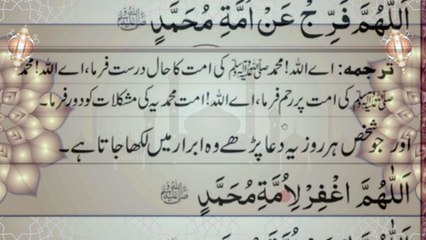 اَللّٰهُمَّ فَرِّجْ عَنْ اُمَّةِ مُحَمَّدٍ ﷺ
ترجمه: اے اللہ! محمد ﷺ کی امت کا حال درست فرما، اے اللہ! محمد
ﷺ کی امت پر رحم فرما، اے اللہ! امت محمدیہ کی مشکلات کو دور فرما۔
اور جو شخص ہر روز یہ دعا پڑھے وہ ابرار میں لکھا جاتا ہے۔
اَللّٰهُمَّ اغْفِرْ لِاُمَّةِ مُحَمَّدٍ ﷺ